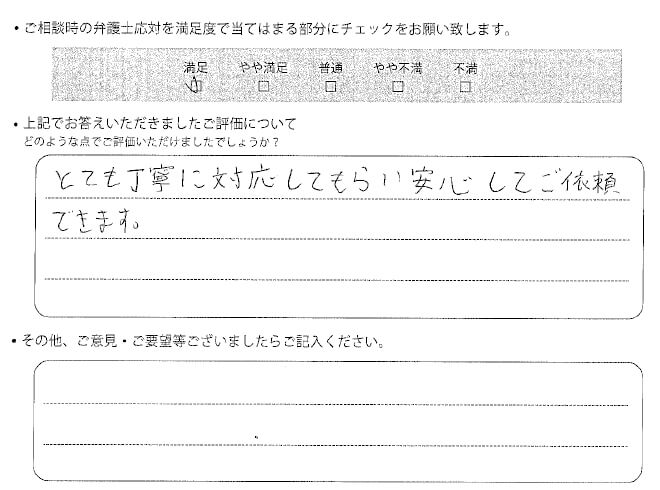 ・ご相談時の弁護士応対を満足度で当てはまる部分にチェックをお願い致します。
満足 やや満足 普通 やや不満 不満
・上記でお答えいただきましたご評価について
どのような点でご評価いただけましたでしょうか？
とても丁寧に対応してもらい安心してご依頼
できます。
・その他、ご意見・ご要望等ございましたらご記入ください。